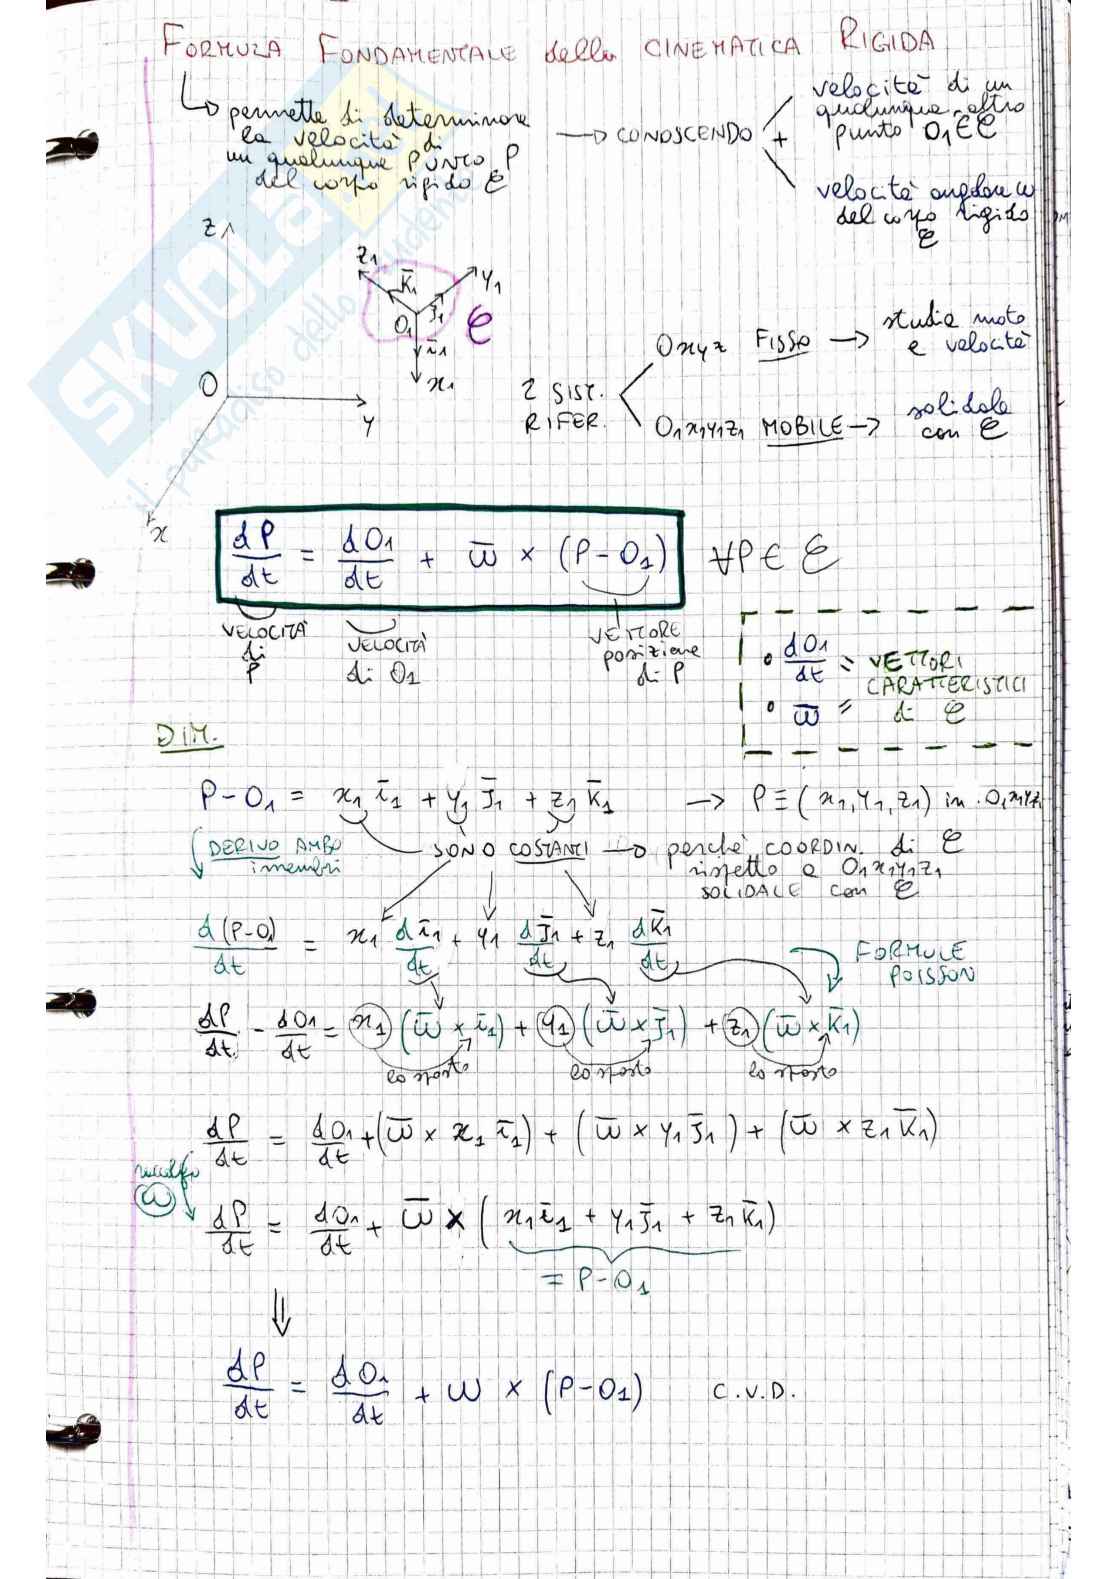 FORMULA FONDAMENTALE della CINEMATICA RIGIDA
permette di determinare
la velocità di
un qualunque PUNTO P
del corpo rigido C
→ CONOSCENDO
velocità di un
qualunque altro
punto O₁ ∈ C
+
velocità angolare ω
del corpo rigido
C
z
O
y
x
z₁
k̄₁
y₁
j̄₁
O₁
ī₁
x₁
C
2 SIST.
RIFER.
Oxyz FISSO → studia moto
e velocità
O₁x₁y₁z₁ MOBILE → solidale
con C
dP/dt = dO₁/dt + ω̄ × (P-O₁) ∀P ∈ C
VELOCITÀ
di
P
VELOCITÀ
di O₁
VETTORE
posizione
di P
• dO₁/dt = VETTORI
CARATTERISTICI
• ω̄ = di C
DIM.
P-O₁ = x₁ ī₁ + y₁ j̄₁ + z₁ k̄₁ → P ≡ (x₁, y₁, z₁) in O₁x₁y₁z₁
DERIVO AMBO
i membri
SONO COSTANTI → perchè COORDIN. di C
rispetto a O₁x₁y₁z₁
SOLIDALE con C
d(P-O₁)/dt = x₁ dī₁/dt + y₁ dj̄₁/dt + z₁ dk̄₁/dt
FORMULE
POISSON
dP/dt - dO₁/dt = x₁ (ω̄ × ī₁) + y₁ (ω̄ × j̄₁) + z₁ (ω̄ × k̄₁)
lo sposto lo sposto lo sposto
dP/dt = dO₁/dt + (ω̄ × x₁ ī₁) + (ω̄ × y₁ j̄₁) + (ω̄ × z₁ k̄₁)
raccolgo
ω
dP/dt = dO₁/dt + ω̄ × (x₁ī₁ + y₁j̄₁ + z₁k̄₁)
= P-O₁
⇓
dP/dt = dO₁/dt + ω × (P-O₁) C.V.D.
SKUOLA
il paradiso dello studente